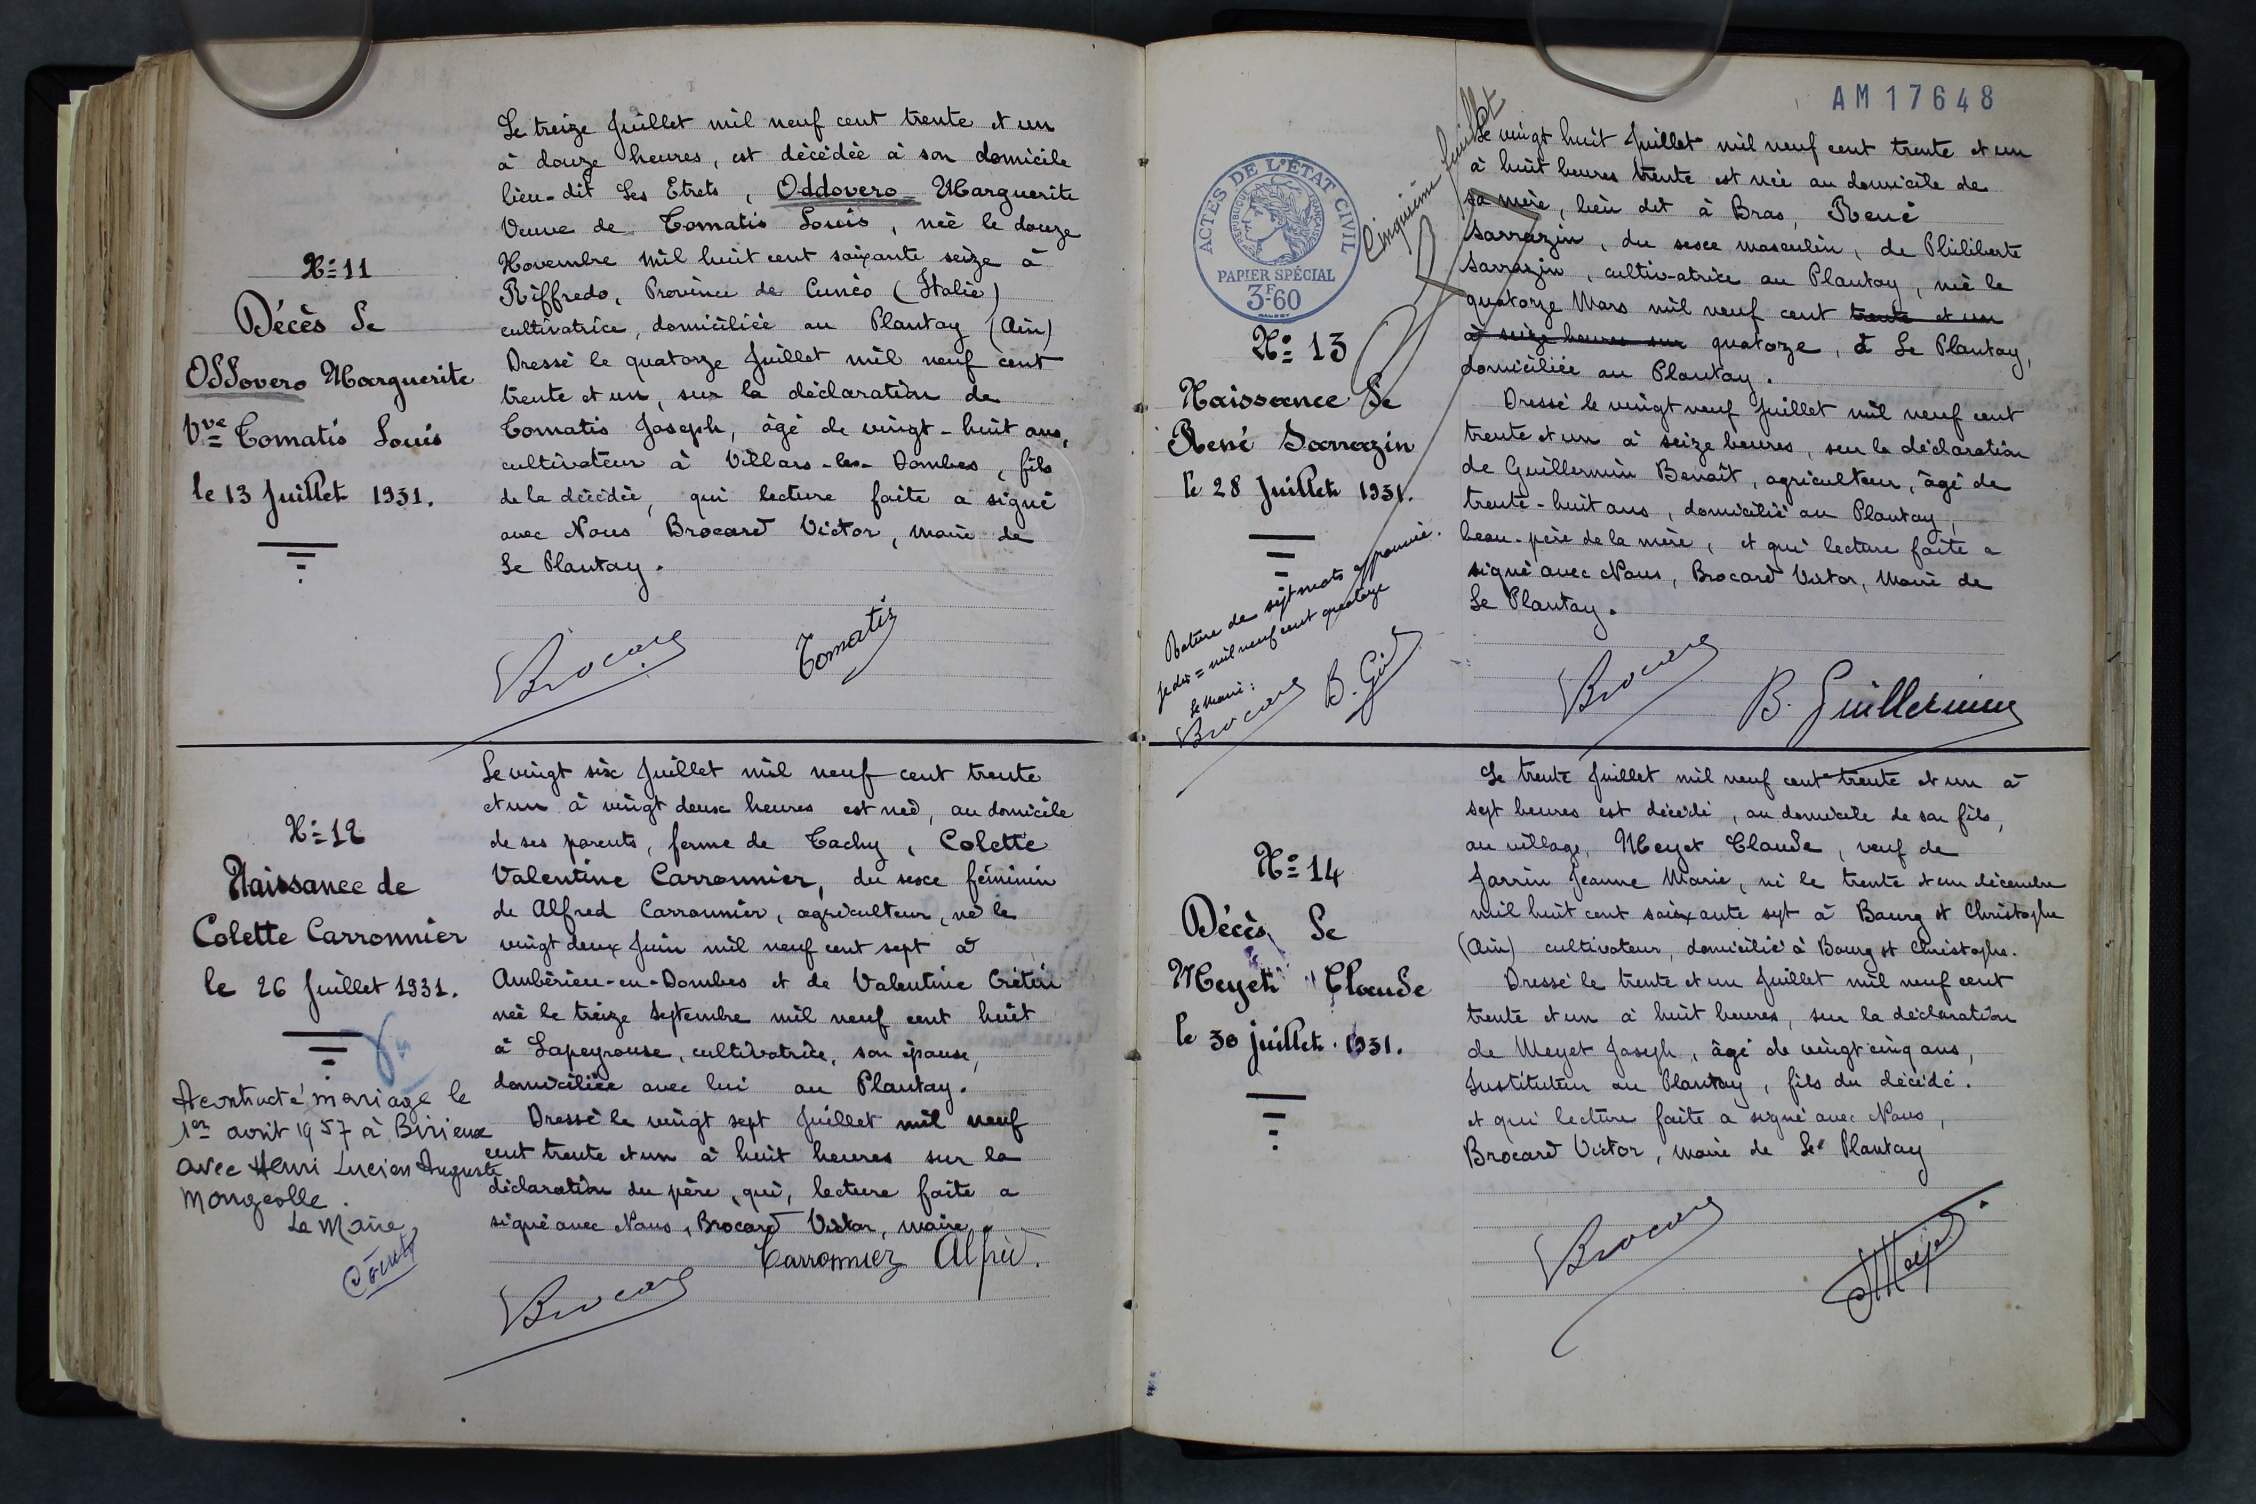 N° 11
Décès de
Oddovero Marguerite
Vve Tomatis Louis
le 13 Juillet 1931.
Le treize Juillet mil neuf cent trente et un
à douze heures, est décédée à son domicile
lieu-dit Les Etrets, Oddovero Marguerite
Veuve de Tomatis Louis, née le douze
Novembre mil huit cent soixante seize à
Riffredo, Province de Cunéo (Italie)
cultivatrice, domiciliée au Plantay (Ain)
Dressé le quatorze Juillet mil neuf cent
trente et un, sur la déclaration de
Tomatis Joseph, âgé de vingt-huit ans,
cultivateur à Villars-les-Dombes, fils
de la décédée, qui lecture faite a signé
avec Nous Brocard Victor, maire de
Le Plantay.
Brocard
Tomatis
N° 12
Naissance de
Colette Carronnier
le 26 Juillet 1931.
A contracté mariage le
1er avril 1957 à Birieux
avec Henri Lucien Auguste
Mongeolle.
Le Maire
Le vingt six Juillet mil neuf cent trente
et un à vingt deux heures est née, au domicile
de ses parents, ferme de Tachy, Colette
Valentine Carronnier, du sexe féminin
de Alfred Carronnier, agriculteur, né le
vingt deux Juin mil neuf cent sept à
Ambérieu-en-Dombes et de Valentine Crétin
née le treize Septembre mil neuf cent huit
à Lapeyrouse, cultivatrice, son épouse,
domiciliée avec lui au Plantay.
Dressé le vingt sept Juillet mil neuf
cent trente et un à huit heures sur la
déclaration du père, qui, lecture faite a
signé avec Nous, Brocard Victor, maire.
Carronnier Alfred.
Brocard
AM17648
ACTES DE L'ÉTAT CIVIL
RÉPUBLIQUE FRANÇAISE
PAPIER SPÉCIAL
3F60
Cinquième feuillet
N° 13
Naissance de
René Sarrazin
le 28 Juillet 1931.
Rature de sept mots approuvée.
Je dis = mil neuf cent quatorze
Le Maire:
Brocard
B. G
Le vingt huit Juillet mil neuf cent trente et un
à huit heures trente est née au domicile de
sa mère, lieu dit à Bras, René
Sarrazin, du sexe masculin, de Philiberte
Sarrazin, cultiv-atrice au Plantay, née le
quatorze Mars mil neuf cent trente et un
à seize heures sur quatorze, à Le Plantay,
domiciliée au Plantay.
Dressé le vingt neuf Juillet mil neuf cent
trente et un à seize heures, sur la déclaration
de Guillermin Benoît, agriculteur, âgé de
trente-huit ans, domicilié au Plantay,
beau-père de la mère, et qui lecture faite a
signé avec Nous, Brocard Victor, Maire de
Le Plantay.
Brocard
B. Guillermin
N° 14
Décès de
Meyet Claude
le 30 juillet 1931.
Le trente Juillet mil neuf cent trente et un à
sept heures est décédé, au domicile de son fils,
au village, Meyet Claude, veuf de
Jarrin Jeanne Marie, né le trente et un décembre
mil huit cent soixante sept à Bourg St Christophe
(Ain) cultivateur, domicilié à Bourg St Christophe.
Dressé le trente et un Juillet mil neuf cent
trente et un à huit heures, sur la déclaration
de Meyet Joseph, âgé de vingt cinq ans,
Instituteur au Plantay, fils du décédé.
et qui lecture faite a signé avec Nous,
Brocard Victor, maire de Le Plantay
Brocard
Meyet